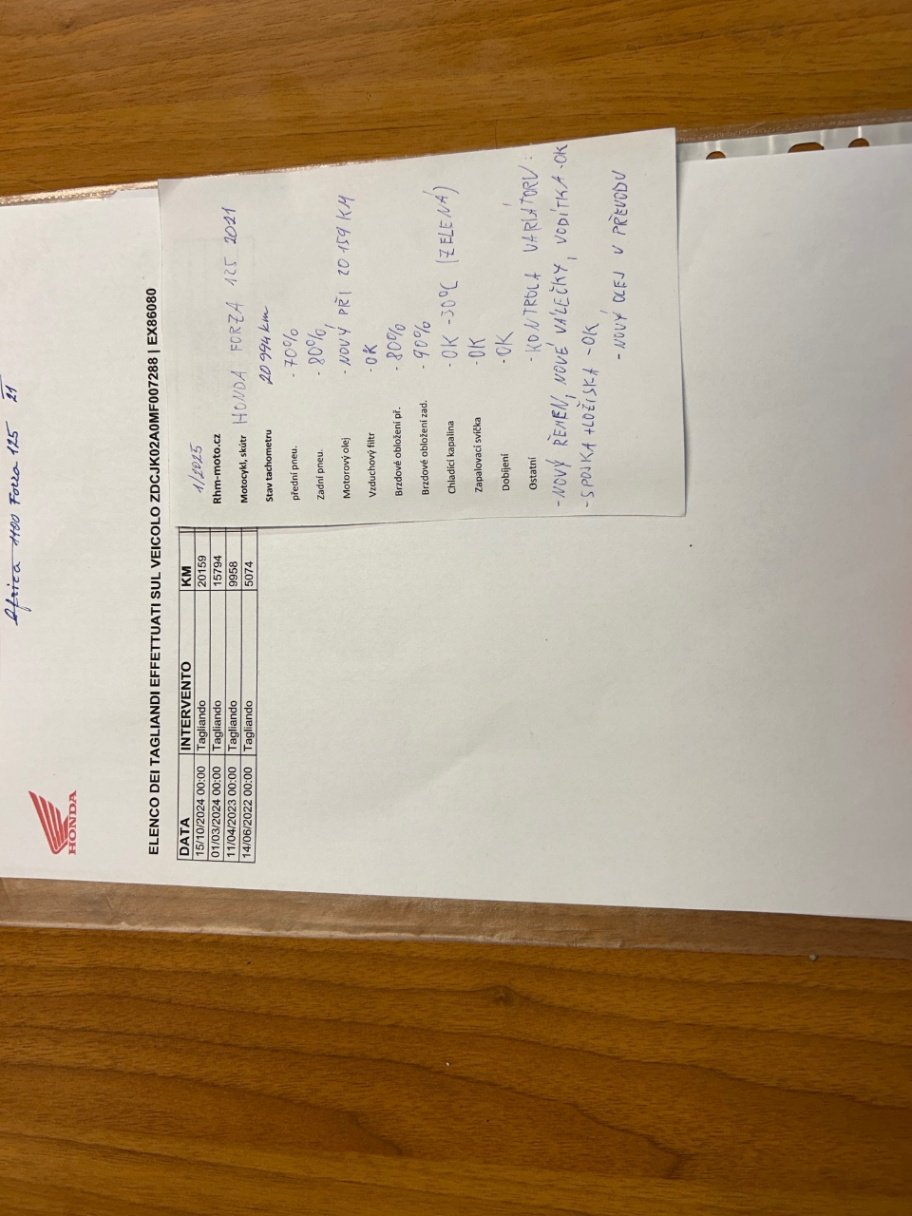 Africa 1100 Forza 125 21
HONDA
ELENCO DEI TAGLIANDI EFFETTUATI SUL VEICOLO ZDCJK02A0MF007288 | EX86080
DATA INTERVENTO KM
15/10/2024 00:00 Tagliando 20159
01/03/2024 00:00 Tagliando 15794
11/04/2023 00:00 Tagliando 9958
14/06/2022 00:00 Tagliando 5074
1/2025
Rhm-moto.cz
Motocykl, skútr HONDA FORZA 125 2021
Stav tachometru 20 994 km
přední pneu. - 70%
Zadní pneu. - 80%
Motorový olej - NOVÝ PŘI 20 159 KM
Vzduchový filtr - OK
Brzdové obložení př. - 80%
Brzdové obložení zad. - 90%
Chladící kapalina - OK -30°C (ZELENÁ)
Zapalovací svíčka - OK
Dobíjení - OK
Ostatní - KONTROLA VARIÁTORU:
- NOVÝ ŘEMEN, NOVÉ VÁLEČKY, VODÍTKA - OK
- SPOJKA + LOŽISKA - OK
- NOVÝ OLEJ V PŘEVODU